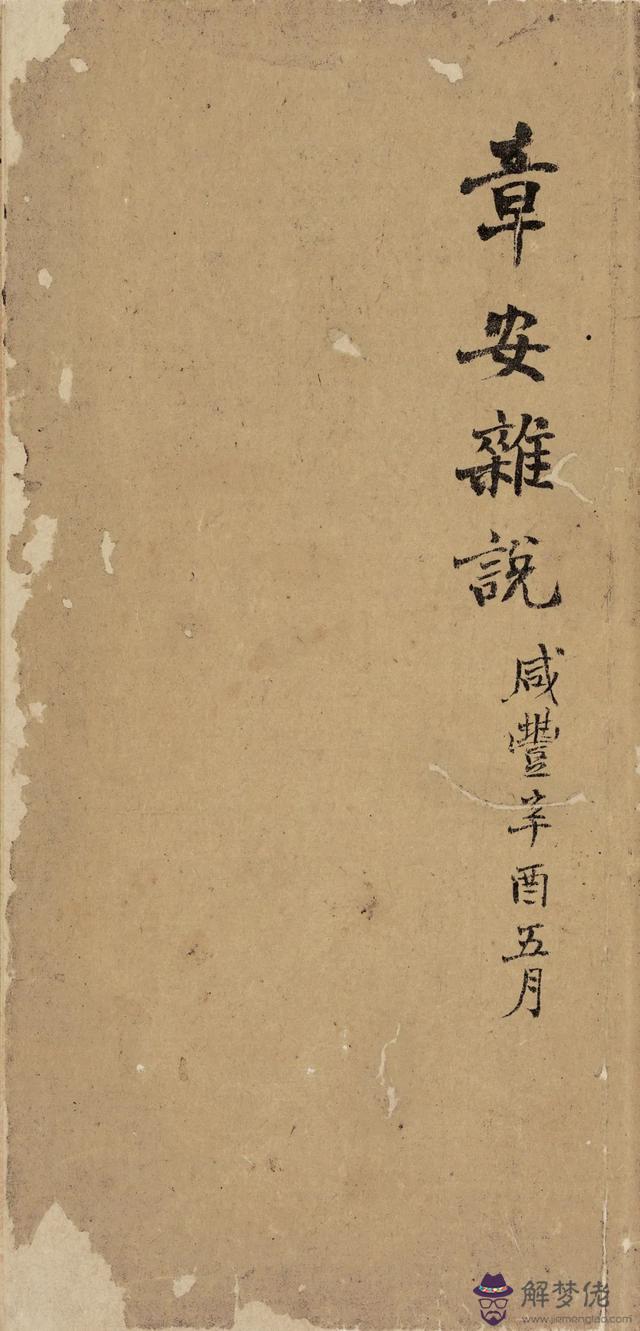 章安雜說
咸豐辛酉五月
解梦佬
www.jiemenglao.com